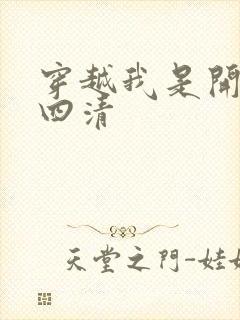 穿越我是開
四清
天堂之門-娃